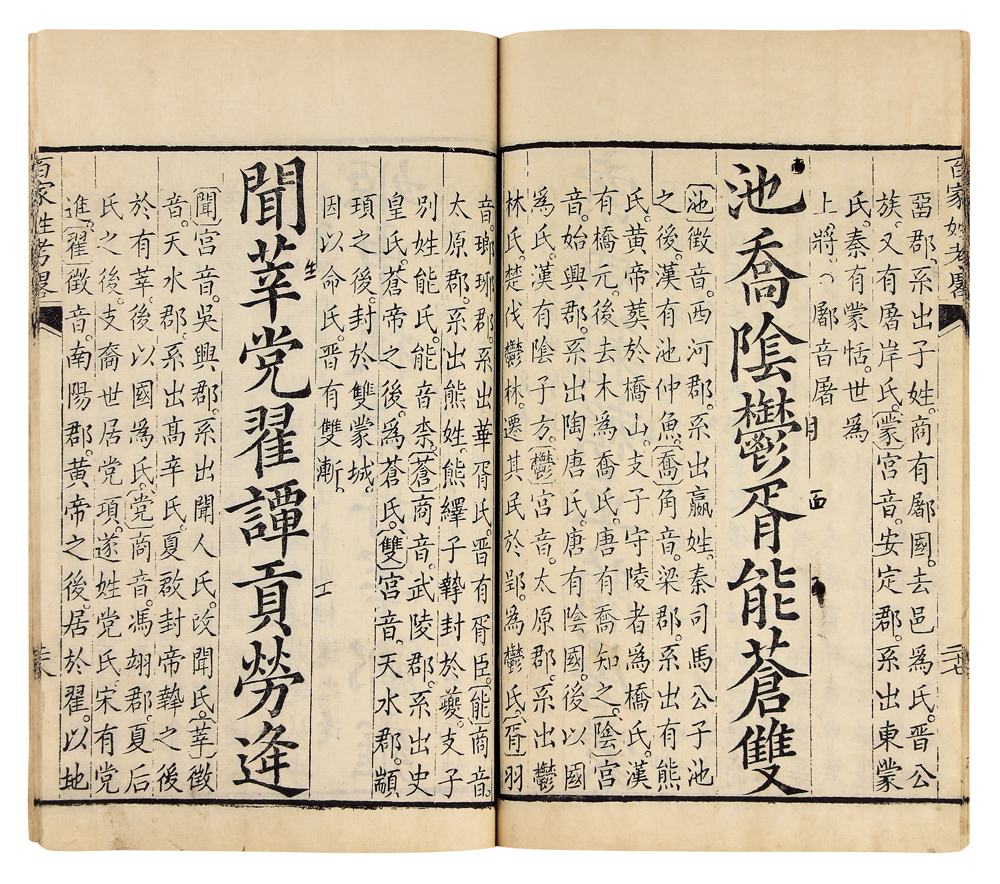 百家姓考畧
啚郡、系出子姓。商有鄏國。去邑爲氏。晋公
族。又有屠岸氏。蒙宮音。安定郡。系出東蒙
氏。秦有蒙恬。世爲
上將、 鄏音屠
池喬陰鬱胥能蒼雙
池徵音。西河郡。系出嬴姓。秦司馬公子池
之後。漢有池仲魚。喬角音。梁郡。系出有熊
氏。黃帝葬於橋山。支子守陵者爲橋氏。漢
有橋元。後去木爲喬氏。唐有喬知之。陰宮
音。始興郡。系出陶唐氏。唐有陰國。後以國
爲氏。漢有陰子方。鬱宮音。太原郡。系出鬱
林氏。楚伐鬱林。遷其民於郢。爲鬱氏。胥羽
音。瑯琊郡。系出華胥氏。晋有胥臣。能商音。
太原郡。系出熊姓。熊繹子摯封於夔。支子
別姓能氏。能音柰。蒼商音。武陵郡。系出史
皇氏。蒼帝之後。爲蒼氏。雙宮音。天水郡。顓
頊之後。封於雙蒙城。
因以命氏。晋有雙漸。
聞莘党翟譚貢勞逄
聞宮音。吳興郡。系出聞人氏。改聞氏。莘徵
音。天水郡。系出高辛氏。夏啟封帝摯之後
於有莘。後以國爲氏。党商音。馮翊郡。夏后
氏之後。支裔世居党項。遂姓党氏。宋有党
進。翟徵音。南陽郡。黃帝之後。居於翟。以地
百家姓考畧